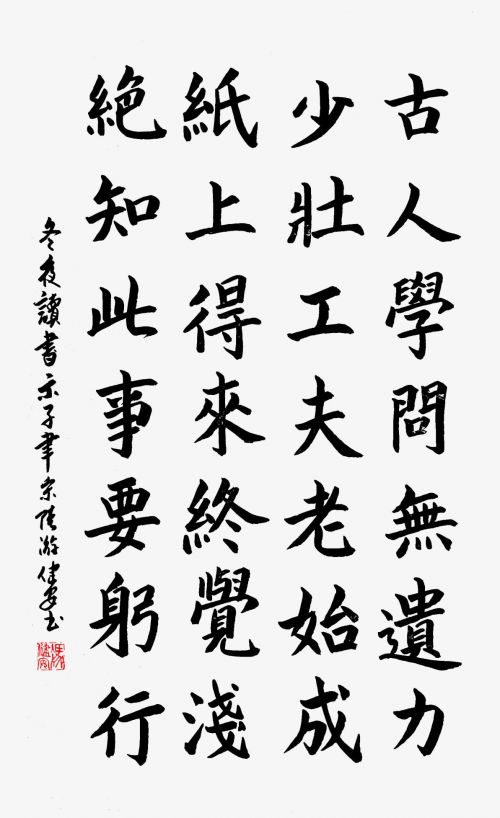 古人學問無遺力
少壯工夫老始成
紙上得來終覺淺
絕知此事要躬行
冬夜讀書示子聿宋陸游健安书